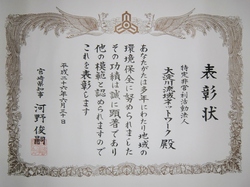 表彰状
特定非営利活動法人
大淀川流域ネットワーク 殿
あなたがたは多年にわたり地域の
環境保全に努められました
その功績は誠に顕著であり
他の模範と認められますので
これを表彰します
平成二十六年六月二十日
宮崎県知事 河野俊嗣